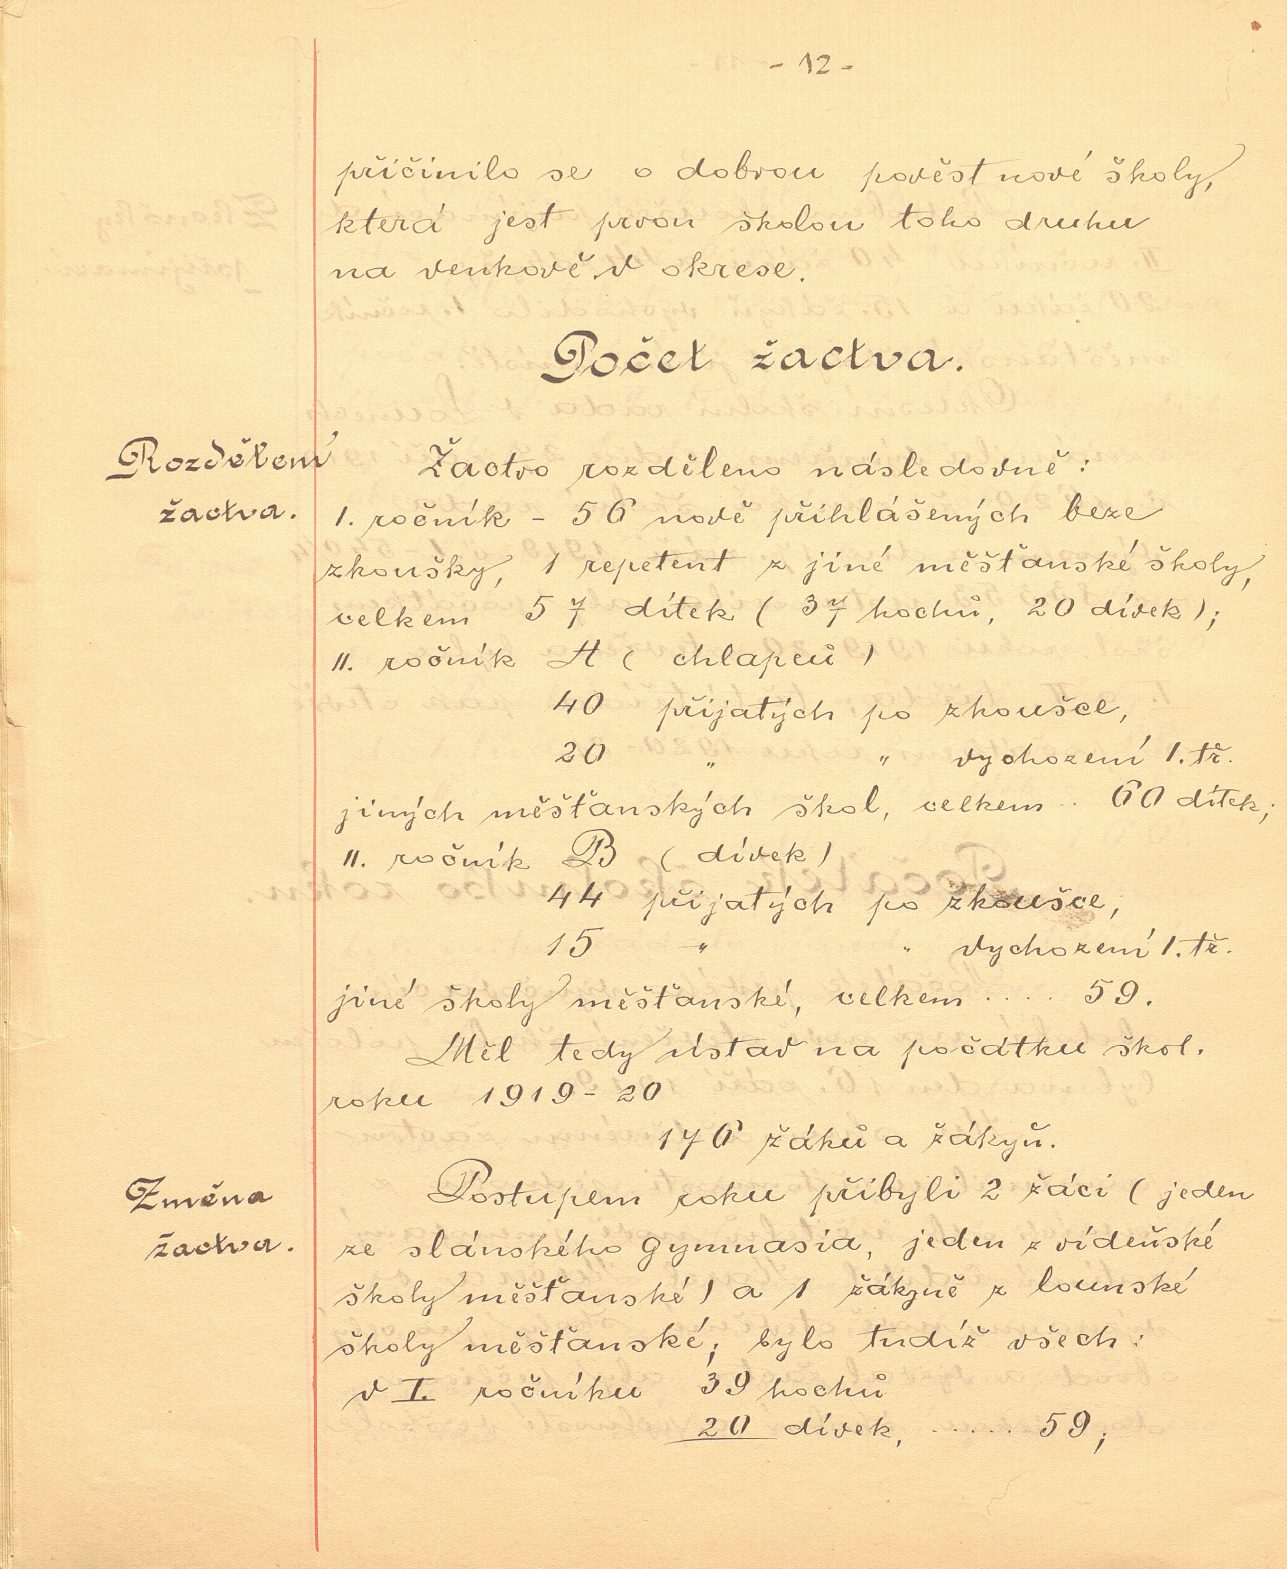 - 12 -
přičinilo se o dobrou pověst nové školy,
která jest prvou školou toho druhu
na venkově v okrese.
Počet žactva.
Rozdělení
žactva.
Žactvo rozděleno následovně:
I. ročník - 56 nově přihlášených beze
zkoušky, 1 repetent z jiné měšťanské školy,
celkem 57 dítek ( 37 hochů, 20 dívek );
II. ročník A ( chlapců )
40 přijatých po zkoušce,
20 „ „ vychození 1. tř.
jiných měšťanských škol, celkem .. 60 dítek;
II. ročník B ( dívek )
44 přijatých po zkoušce,
15 „ „ vychození 1. tř.
jiné školy měšťanské, celkem .... 59.
Měl tedy ústav na počátku škol.
roku 1919-20
176 žáků a žákyň.
Změna
žactva.
Postupem roku přibyli 2 žáci ( jeden
ze slánského gymnasia, jeden z vídeňské
školy měšťanské ) a 1 žákyně z lounské
školy měšťanské; bylo tudíž všech:
v I. ročníku 39 hochů
20 dívek, ..... 59;